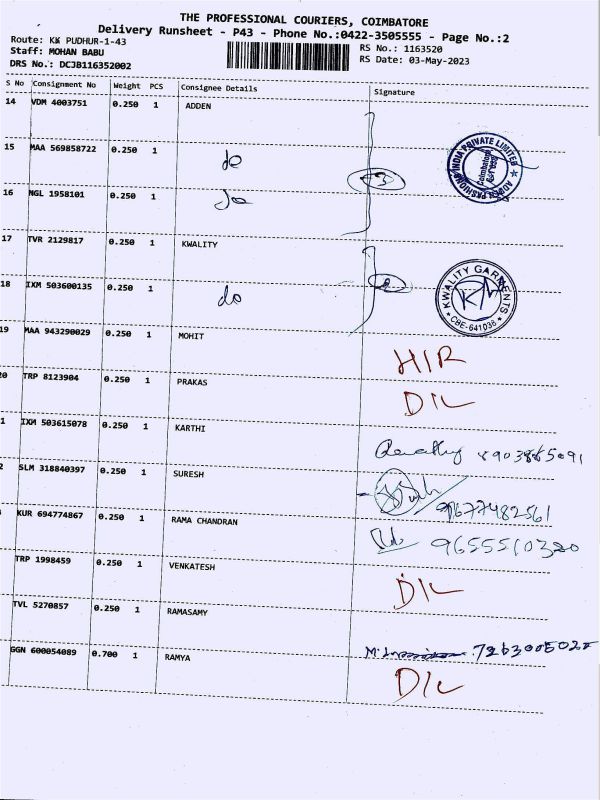 THE PROFESSIONAL COURIERS, COIMBATORE
Delivery Runsheet - P43 - Phone No.:0422-3505555 - Page No.:2
Route: KK PUDHUR-1-43
Staff: MOHAN BABU
DRS No.: DCJB116352002
RS No.: 1163520
RS Date: 03-May-2023
S No Consignment No Weight PCS Consignee Details Signature
14 VDM 4003751 0.250 1 ADDEN
15 MAA 569858722 0.250 1 do
3
INDIA PRIVATE LIMITED
Coimbatore
16 NGL 1958101 0.250 1 do
17 TVR 2129817 0.250 1 KWALITY
18 IXM 503600135 0.250 1 do
2
KWALITY GARMENTS
CBE-641038
19 MAA 943290029 0.250 1 MOHIT
HIR
20 TRP 8123904 0.250 1 PRAKAS
DIL
1 IXM 503615078 0.250 1 KARTHI
2 SLM 318840397 0.250 1 SURESH
9677482561
KUR 694774867 0.250 1 RAMA CHANDRAN
9655510320
TRP 1998459 0.250 1 VENKATESH
DIL
TVL 5270857 0.250 1 RAMASAMY
GGN 600054089 0.700 1 RAMYA
DIL